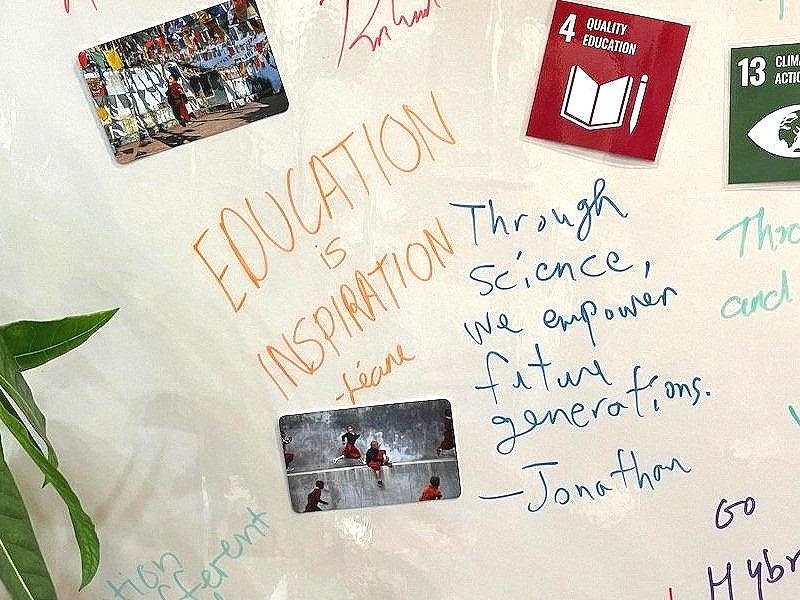 4 QUALITY
EDUCATION
13 CLIMA
ACTIO
EDUCATION
is
INSPIRATION
-Léane
Through
Science,
we empower
future
generations.
-Jonathan
Thro
and
GO
Hybr
tion
fferent